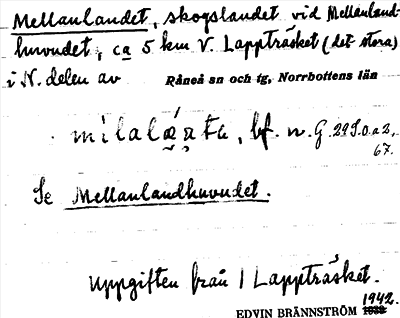 Mellanlandet, skogslandet vid Mellanland-
huvudet, ca 5 km V. Lappträsket (det stora)
i N. delen av Råneå sn och tg, Norrbottens län
bf. n. G. 29 S. o a 2,
67.
Se Mellanlandhuvudet.
Uppgiften från 1 Lappträsket.
EDVIN BRÄNNSTRÖM 1942.